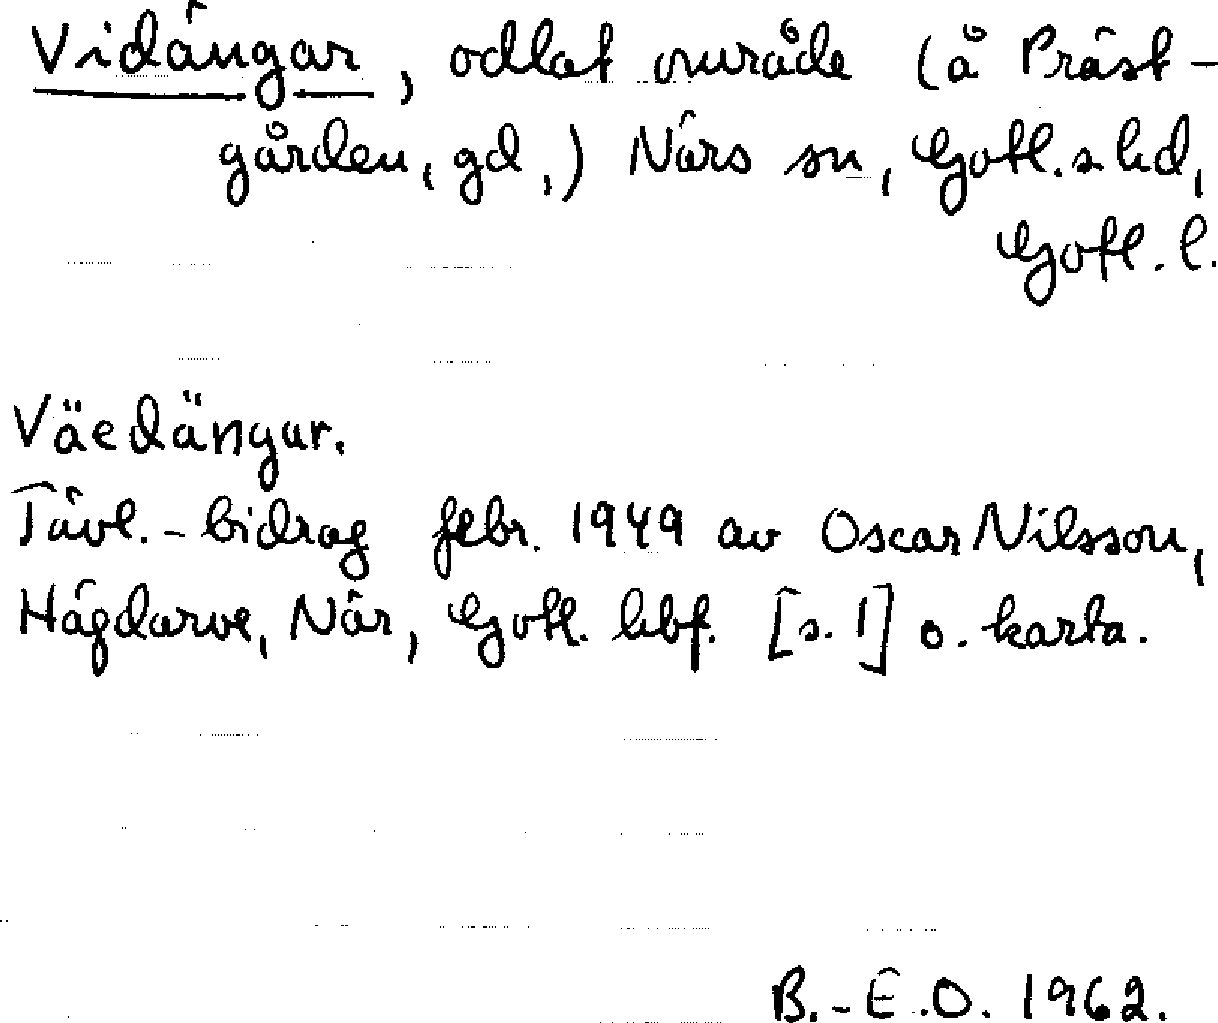 Vidängar, odlat område (å Präst-
gården, gd,) Närs sn, Gotl. s hd,
Gotl. l.
Väedängar.
Tävl.-bidrag febr. 1949 av Oscar Nilsson,
Hägdarve, När, Gotl. hbf. [s. 1] o. karta.
B.-E.O. 1962.